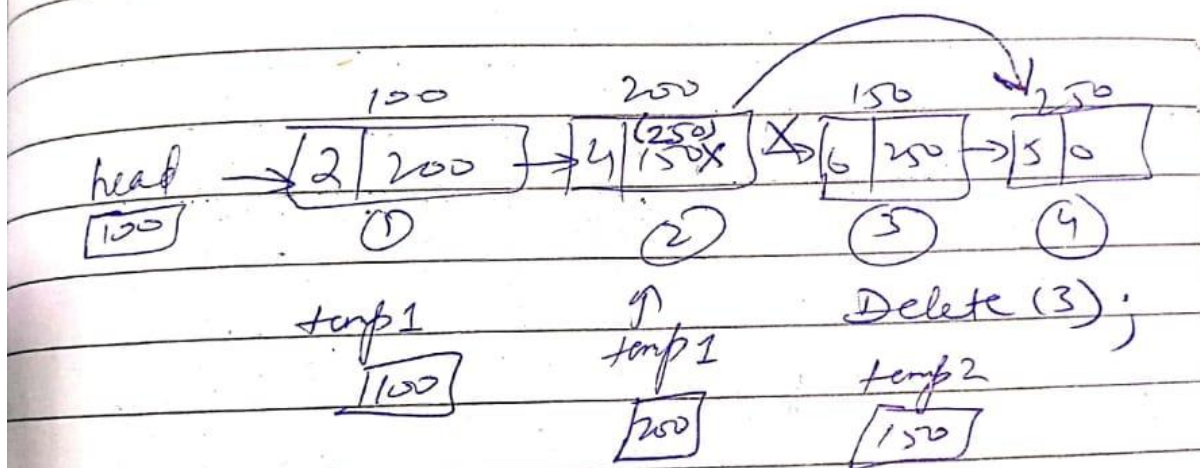 100 200 150 250
head 2 200 4 (250) 150X X 6 250 5 0
100 1 2 3 4
temp1 temp1 Delete (3);
100 200 temp2
150